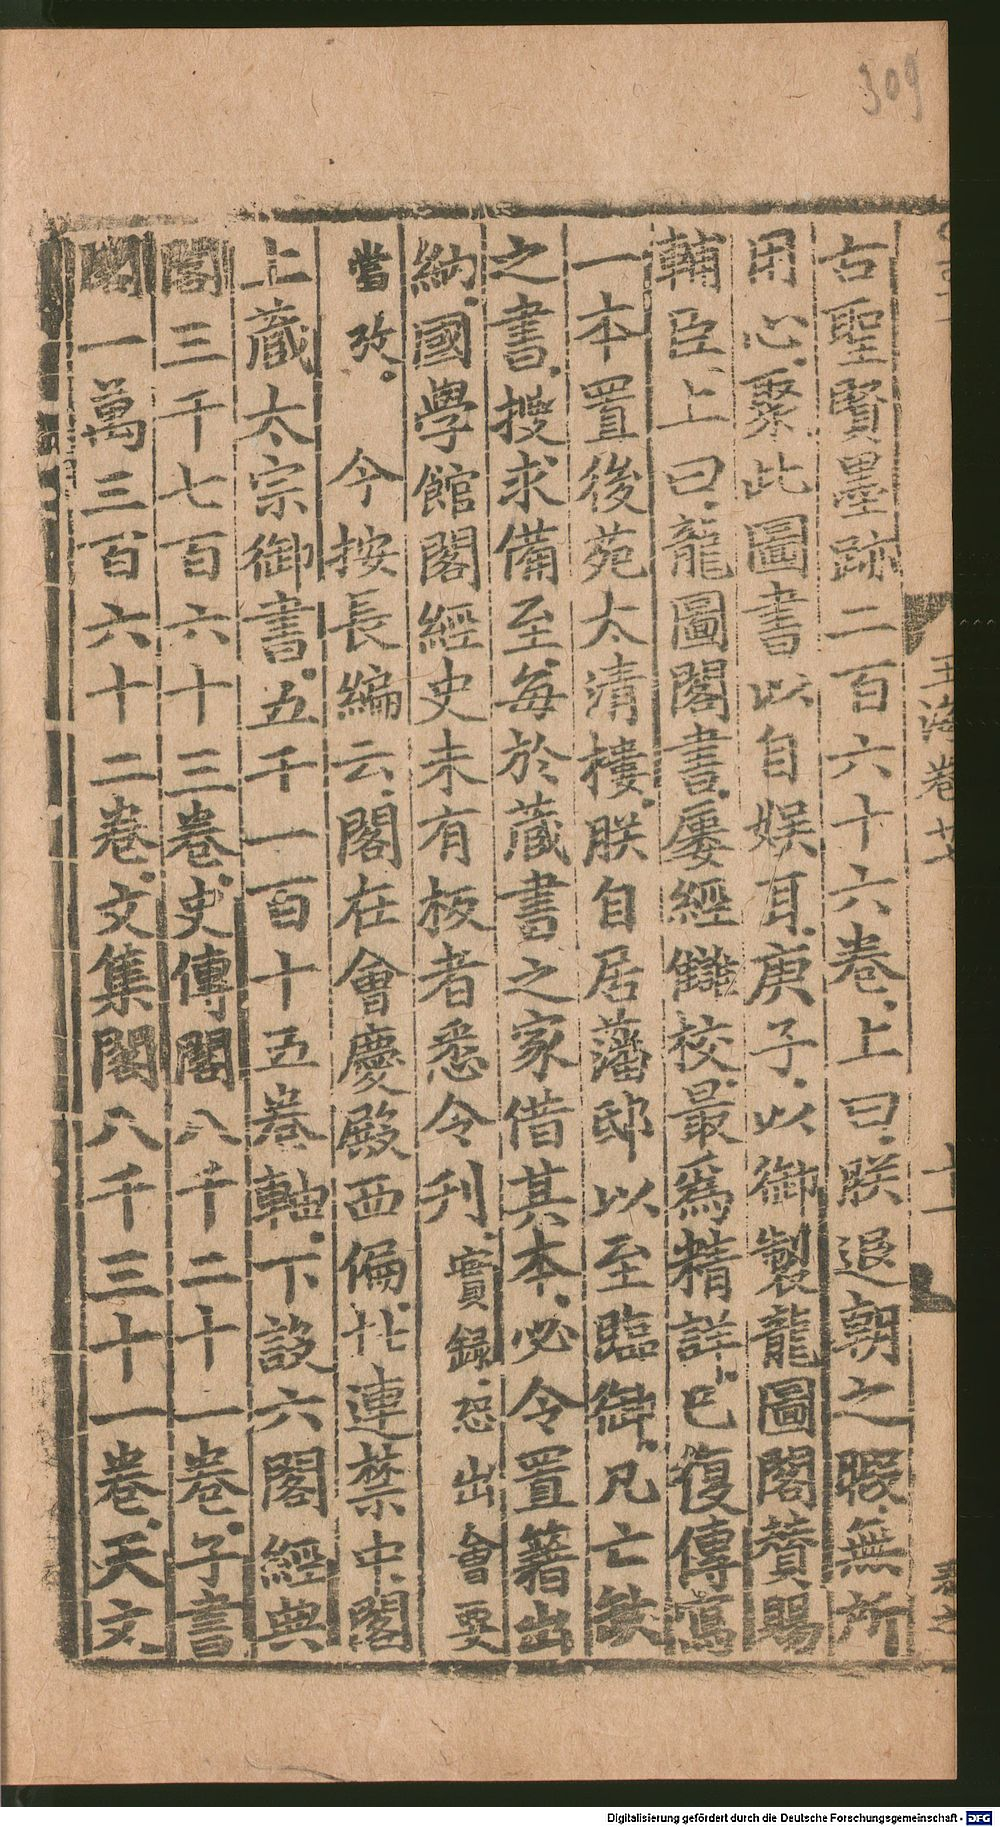 309
古聖賢墨跡二百六十六卷上曰朕退朝之暇無所
用心聚此圖書以自娛耳庚子以御製龍圖閣贊賜
輔臣上曰龍圖閣書屢經讎校最爲精詳已復傳寫
一本置後苑太清樓朕自居藩邸以至臨御凡亡缺
之書搜求備至每於藏書之家借其本必令置籍出
納國學館閣經史未有板者悉令刋實録恐出會要
當攷。 今按長編云閣在會慶殿西偏北連禁中閣
上藏太宗御書五千一百十五卷軸下設六閣經典
閣三千七百六十三卷史傳閣八千二十一卷子書
閣一萬三百六十二卷文集閣八千三十一卷天文
玉海卷廿七
十一
Digitalisierung gefördert durch die Deutsche Forschungsgemeinschaft - DFG